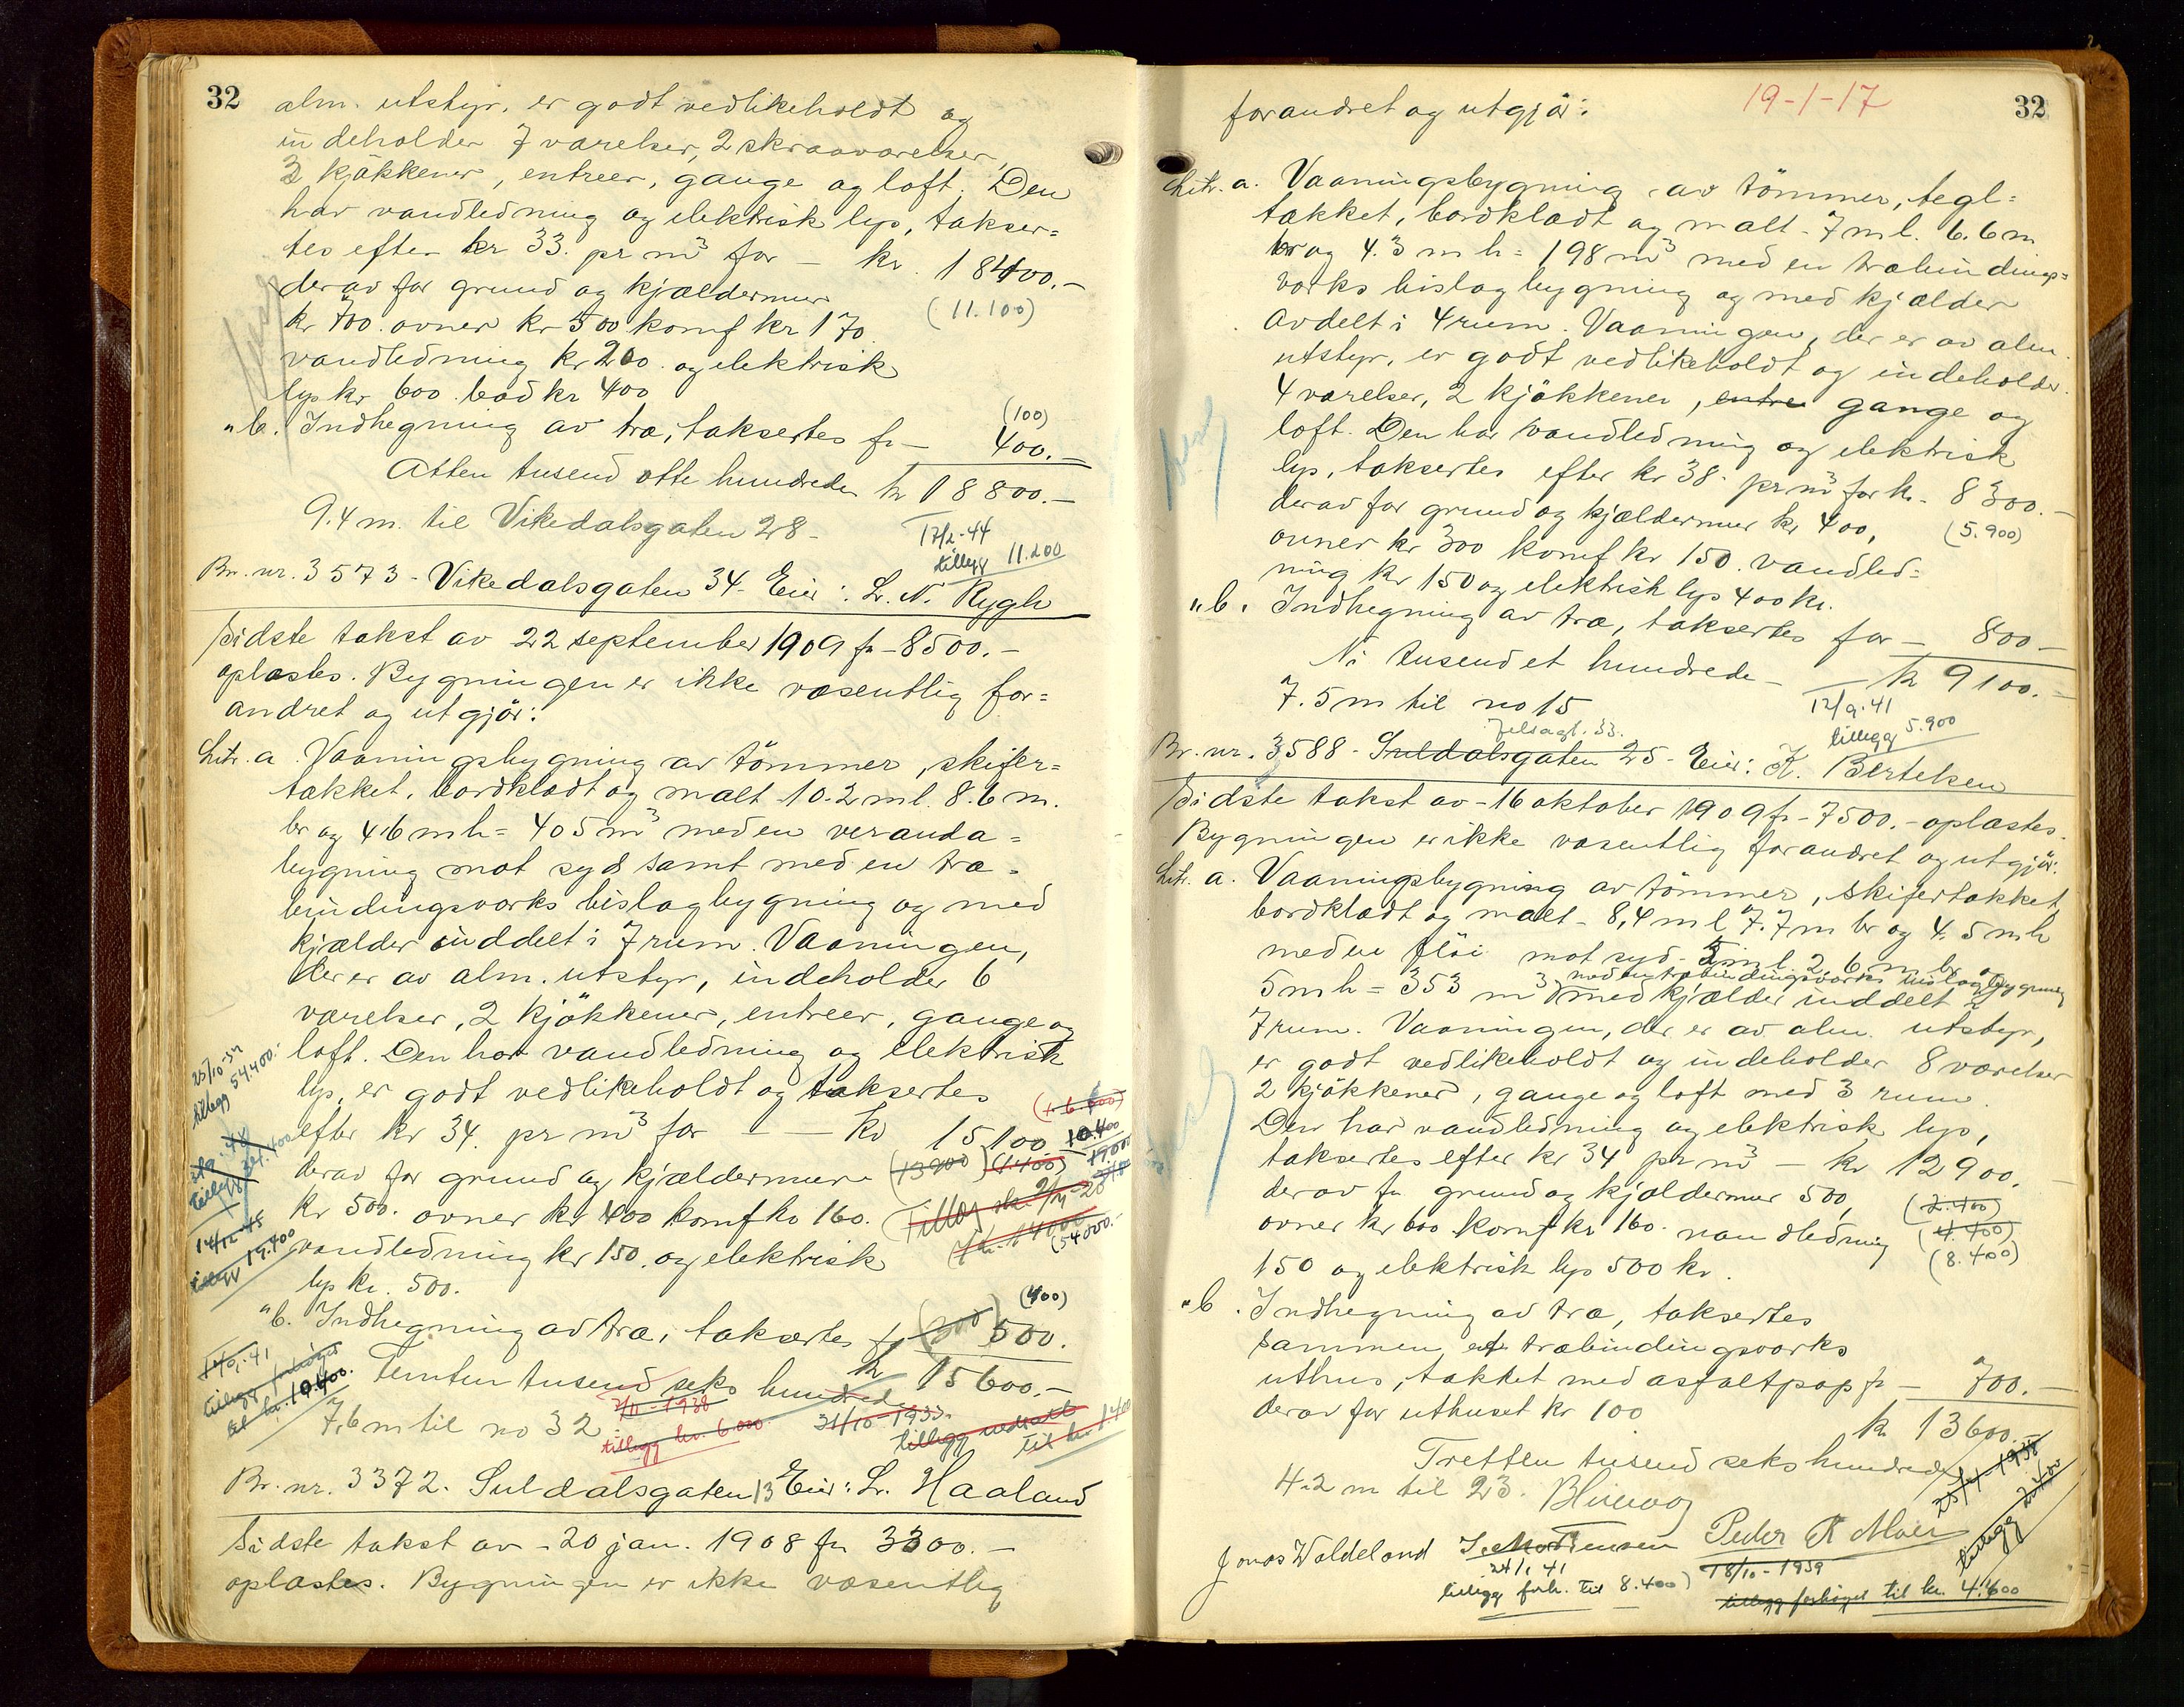 32
alm. utstyr, er godt vedlikeholdt og
indeholder 7 værelser, 2 skraaværelser,
3 kjøkkener, entreer, gange og loft. Den
har vandledning og elektrisk lys, takser=
tes efter kr 33. pr m³ for — kr. 18400.—
derav for grund og kjældermur (11.100)
kr 700. ovner kr 500 komf kr 170.
vandledning kr 200. og elektrisk
lys kr 600. bad kr 400
(100)
" b. Indhegning av træ, taksertes fr — 400.—
Atten tusend otte hundrede kr 18800.—
9.4 m. til Vikedalsgaten 28 —
12/2-44
tillegg 11.200
Br. nr. 3573 - Vikedalsgaten 34. Eier: L. N. Rygh
Sidste takst av 22 september 1909 fr - 8500.—
oplæstes. Bygningen er ikke væsentlig for=
andret og utgjør:
Litr. a Vaaningsbygning av tømmer, skifer=
tækket, bordklædt og malt 10.2 m l. 8.6 m.
br og 4.6 m h = 405 m³ med en veranda=
bygning mot syd samt med en træ=
bindingsværks bislagbygning og med
kjælder inddelt i 7 rum. Vaaningen,
der er av alm. utstyr, indeholder 6
værelser, 2 kjøkkener, entreer, gange og
loft. Den har vandledning og elektrisk
25/10-54
tillegg 54.400.-
lys, er godt vedlikeholdt og taksertes
efter kr 34. pr m³ for — — Kr 15100 10.400
derav for grund og kjældermur (13900) (1.400) 19.000
kr 500. ovner kr 400 komf kr 160.
(54000.-
14/12-45
tillegg 19.400
vandledning kr 150. og elektrisk
lys kr. 500.
(400)
" b. Indhegning av træ, taksertes fr (300) 500.
Femten tusend seks hundrede kr 15600.—
14/9-41
tillegg forhøiet
til kr. 10.400.
7.6 m til no 32.
2/11-1938
tillegg kr. 6.000
31/10-1933.
tillegg nedsatt
til kr. 1.400
Br. nr. 3372. Suldalsgaten 13 Eier: L. Haaland
Sidste takst av - 20 jan. 1908 fr 3300.—
oplæstes. Bygningen er ikke væsentlig
19-1-17
32
forandret og utgjør:
Litr. a. Vaaningsbygning av tømmer, tegl=
tækket, bordklædt og malt - 7 m l. 6.6 m
br og 4.3 m h = 198 m³ med en træbindings=
værks bislagbygning og med kjælder
avdelt i 4 rum. Vaaningen, der er av alm.
utstyr, er godt vedlikeholdt og indeholder
4 værelser, 2 kjøkkener, entre gange og
loft. Den har vandledning og elektrisk
lys, taksertes efter kr 38. pr m³ for kr. 8300.—
derav for grund og kjældermur kr 400, (5.900)
ovner kr 300 komf kr 150. vandled=
ning kr 150 og elektrisk lys 400 kr.
" b. Indhegning av træ, taksertes for — 800 —
Ni tusend et hundrede — kr 9100.—
7.5 m til no 15
12/9.41
tillegg 5.900
Jelsagt. 33.
Br. nr. 3588 - Suldalsgaten 25 - Eier: K. Bertelsen
Sidste takst av - 16 oktober 1909 fr - 7500.- oplæstes.
Bygningen er ikke væsentlig forandret og utgjør:
Litr. a. Vaaningsbygning av tømmer, skifertækket,
bordklædt og malt - 8,4 m l 7.7 m br og 4.5 m h
med en fløi mot syd - 5 m l 2.6 m br og
med en træbindingsværks bislagbygning
5 m h = 353 m³ med kjælder inddelt i
7 rum. Vaaningen, der er av alm. utstyr,
er godt vedlikeholdt og indeholder 8 værelser
2 kjøkkener, gange og loft med 3 rum.
Den har vandledning og elektrisk lys,
taksertes efter kr 34 pr m³ — kr 12900.—
derav fr grund og kjældermur 500, (2.400)
ovner kr 600 komf kr 160. vandledning (4.400)
150 og elektrisk lys 500 kr. (8.400)
" b. Indhegning av træ, taksertes
sammen et træbindingsværks
uthus, tækket med asfaltpap fr — 700.—
derav for uthuset kr 100 kr. 13600.—
Tretten tusend seks hundrede
4.2 m til 23.
tillegg 2.400
Jonas Waldeland
24/1 41
tillegg forh. til 8.400)
Peder R Moer
18/10-1939
tillegg forhøiet til kr. 4.400